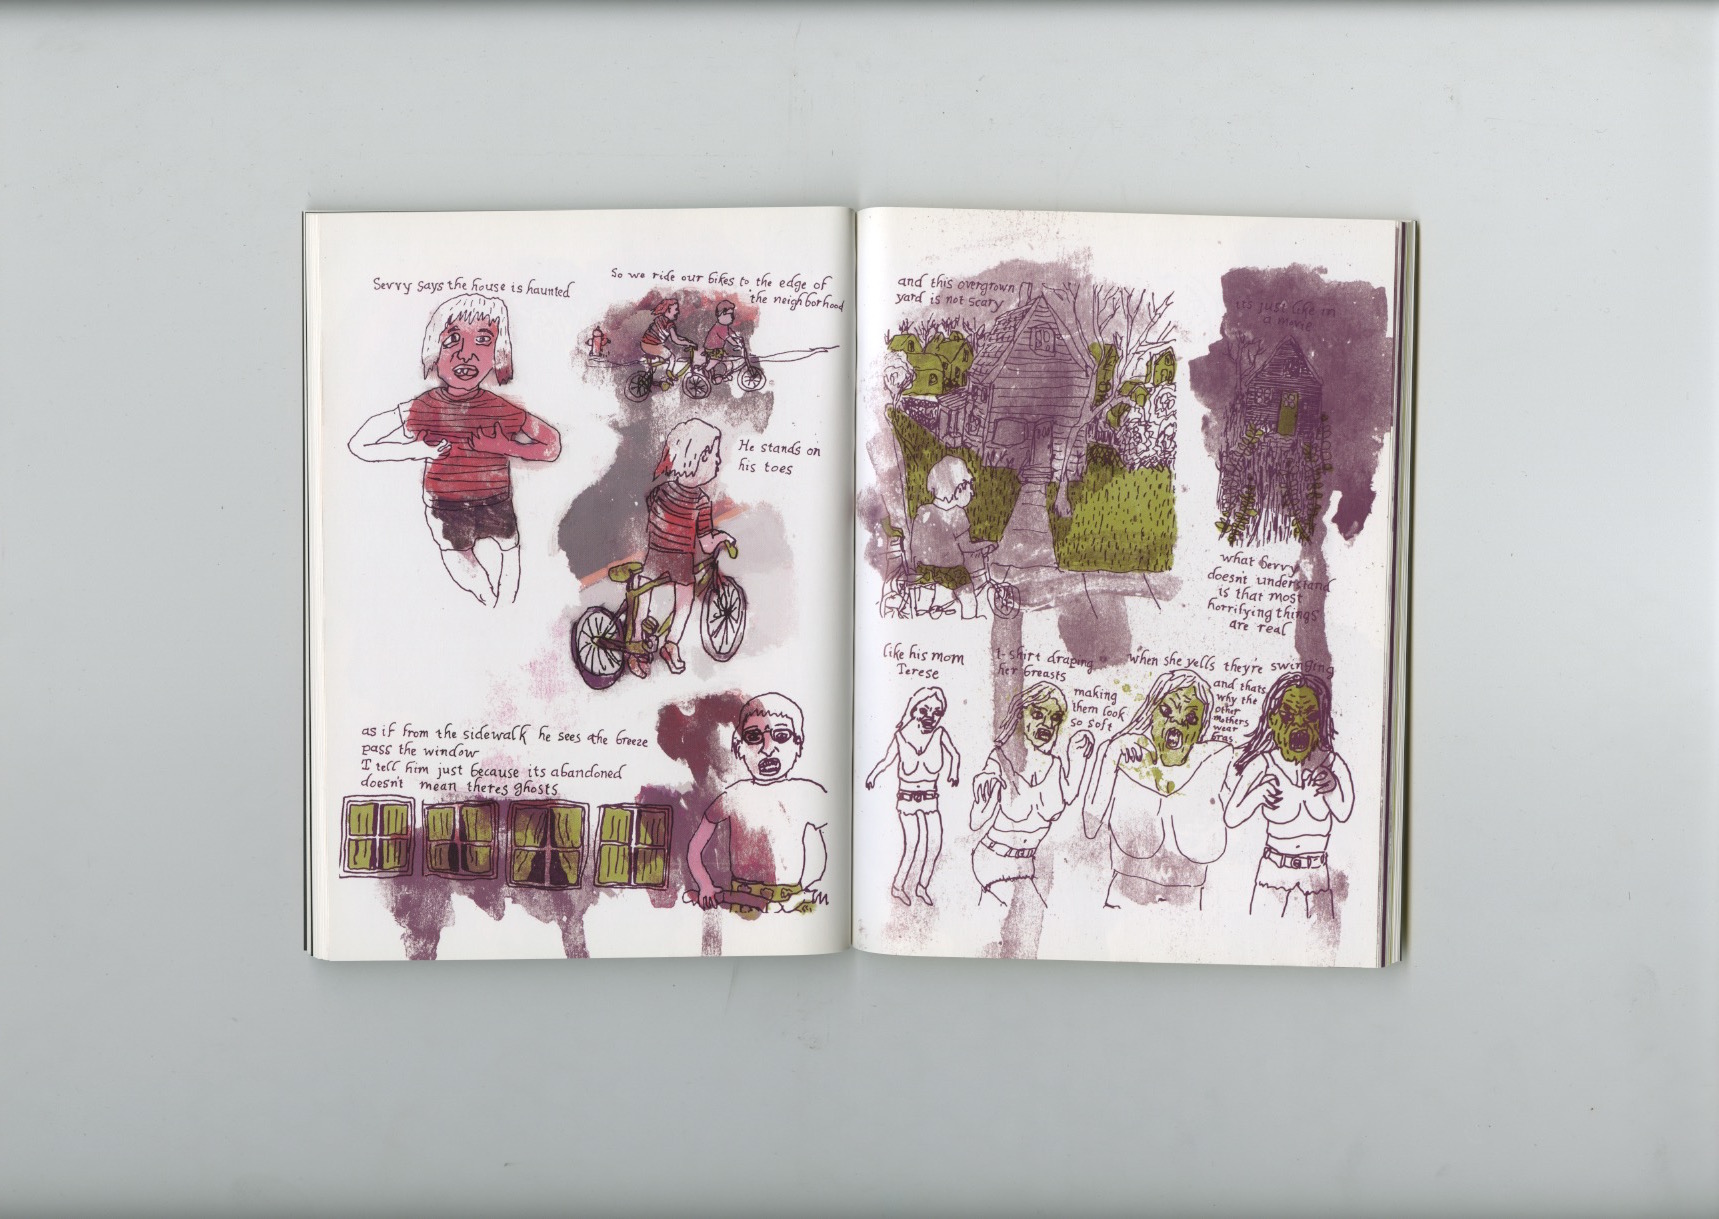 Serry says the house is haunted
So we ride our bikes to the edge of
the neighborhood
He stands on
his toes
as if from the sidewalk he sees the breeze
pass the window
I tell him just because its abandoned
doesn't mean theres ghosts
and this overgrown
yard is not scary
its just like in
a movie
what Serry
doesn't understand
is that most
horrifying things
are real
like his mom
Terese
t-shirt draping
her breasts
making
them look
so soft
when she yells they're swinging
and thats
why the
other
mothers
wear
bras